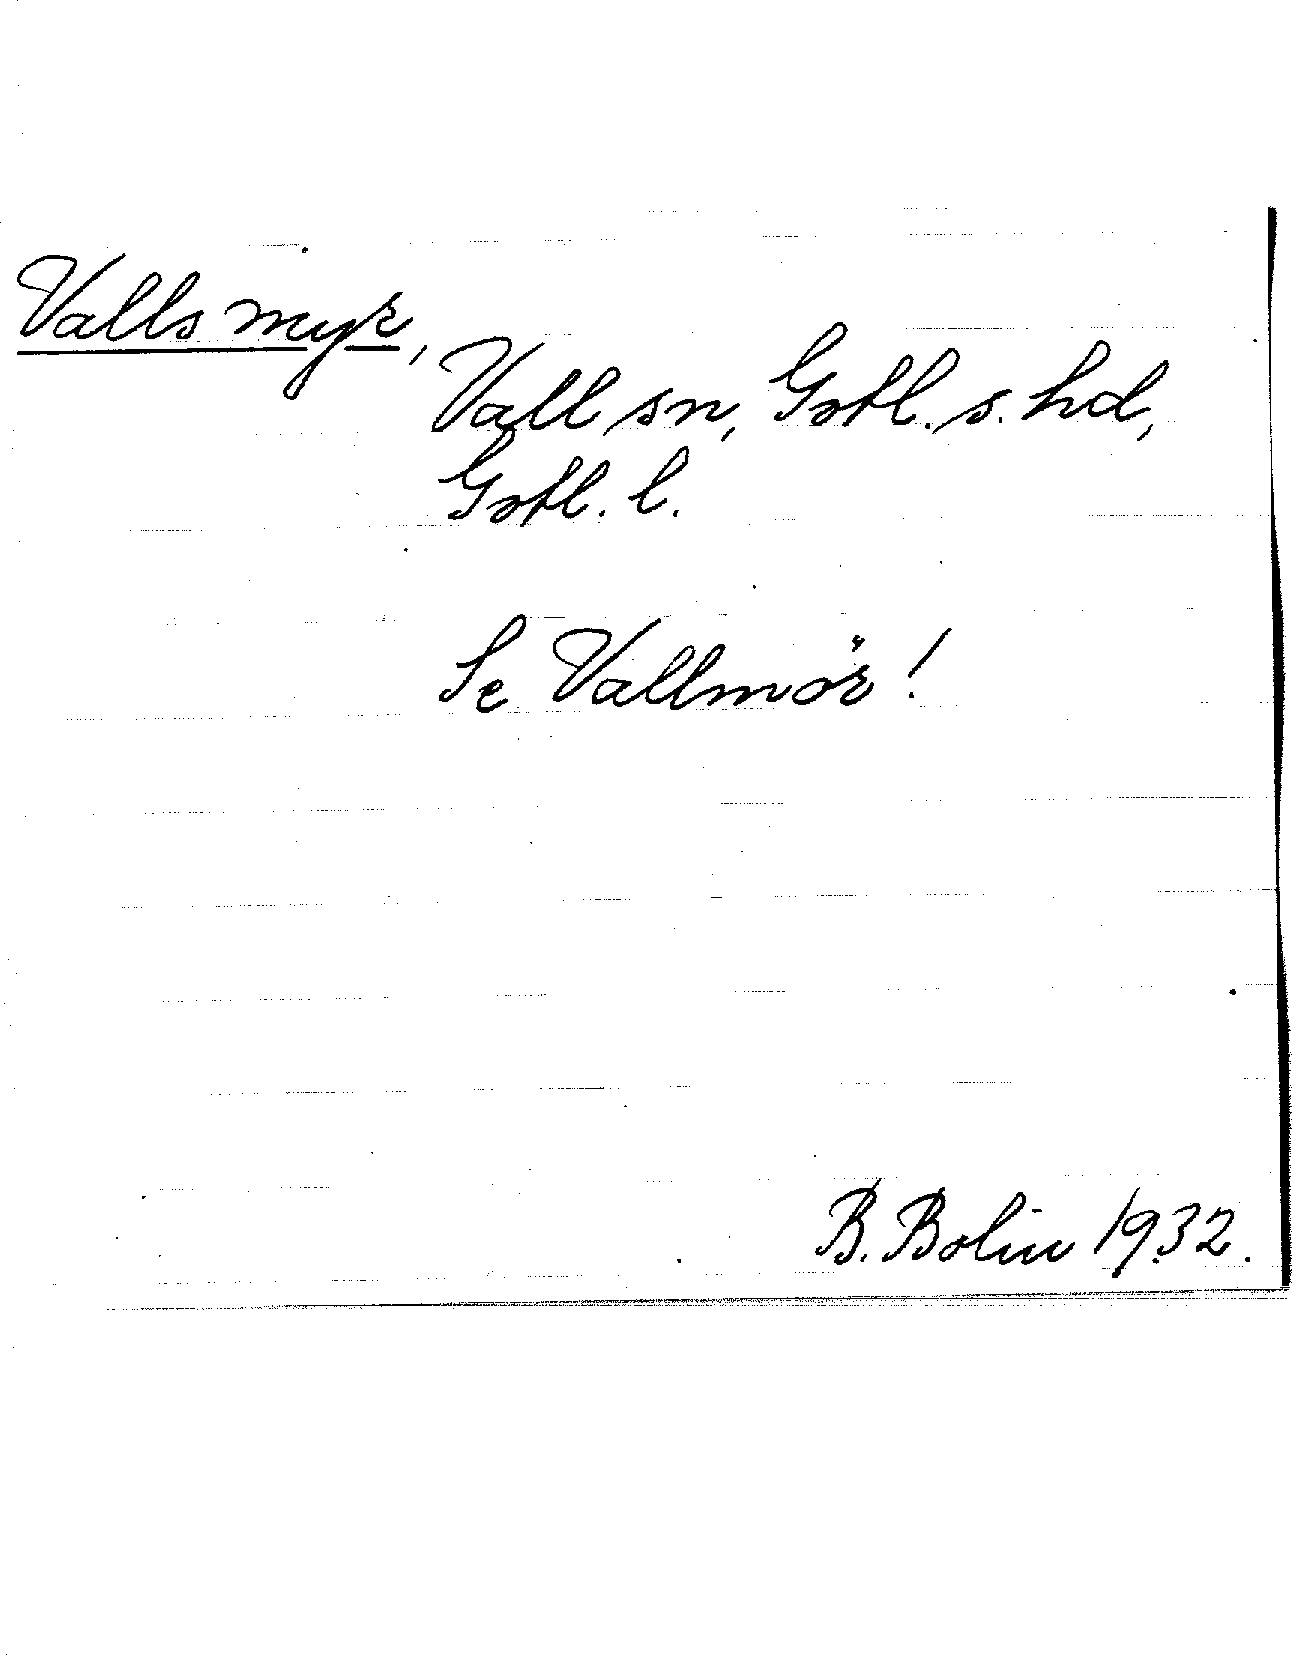 Valls myr,
Vall sn, Gotl. s. hd,
Gotl. l.
Se Vallmör!
B. Bolin 1932.